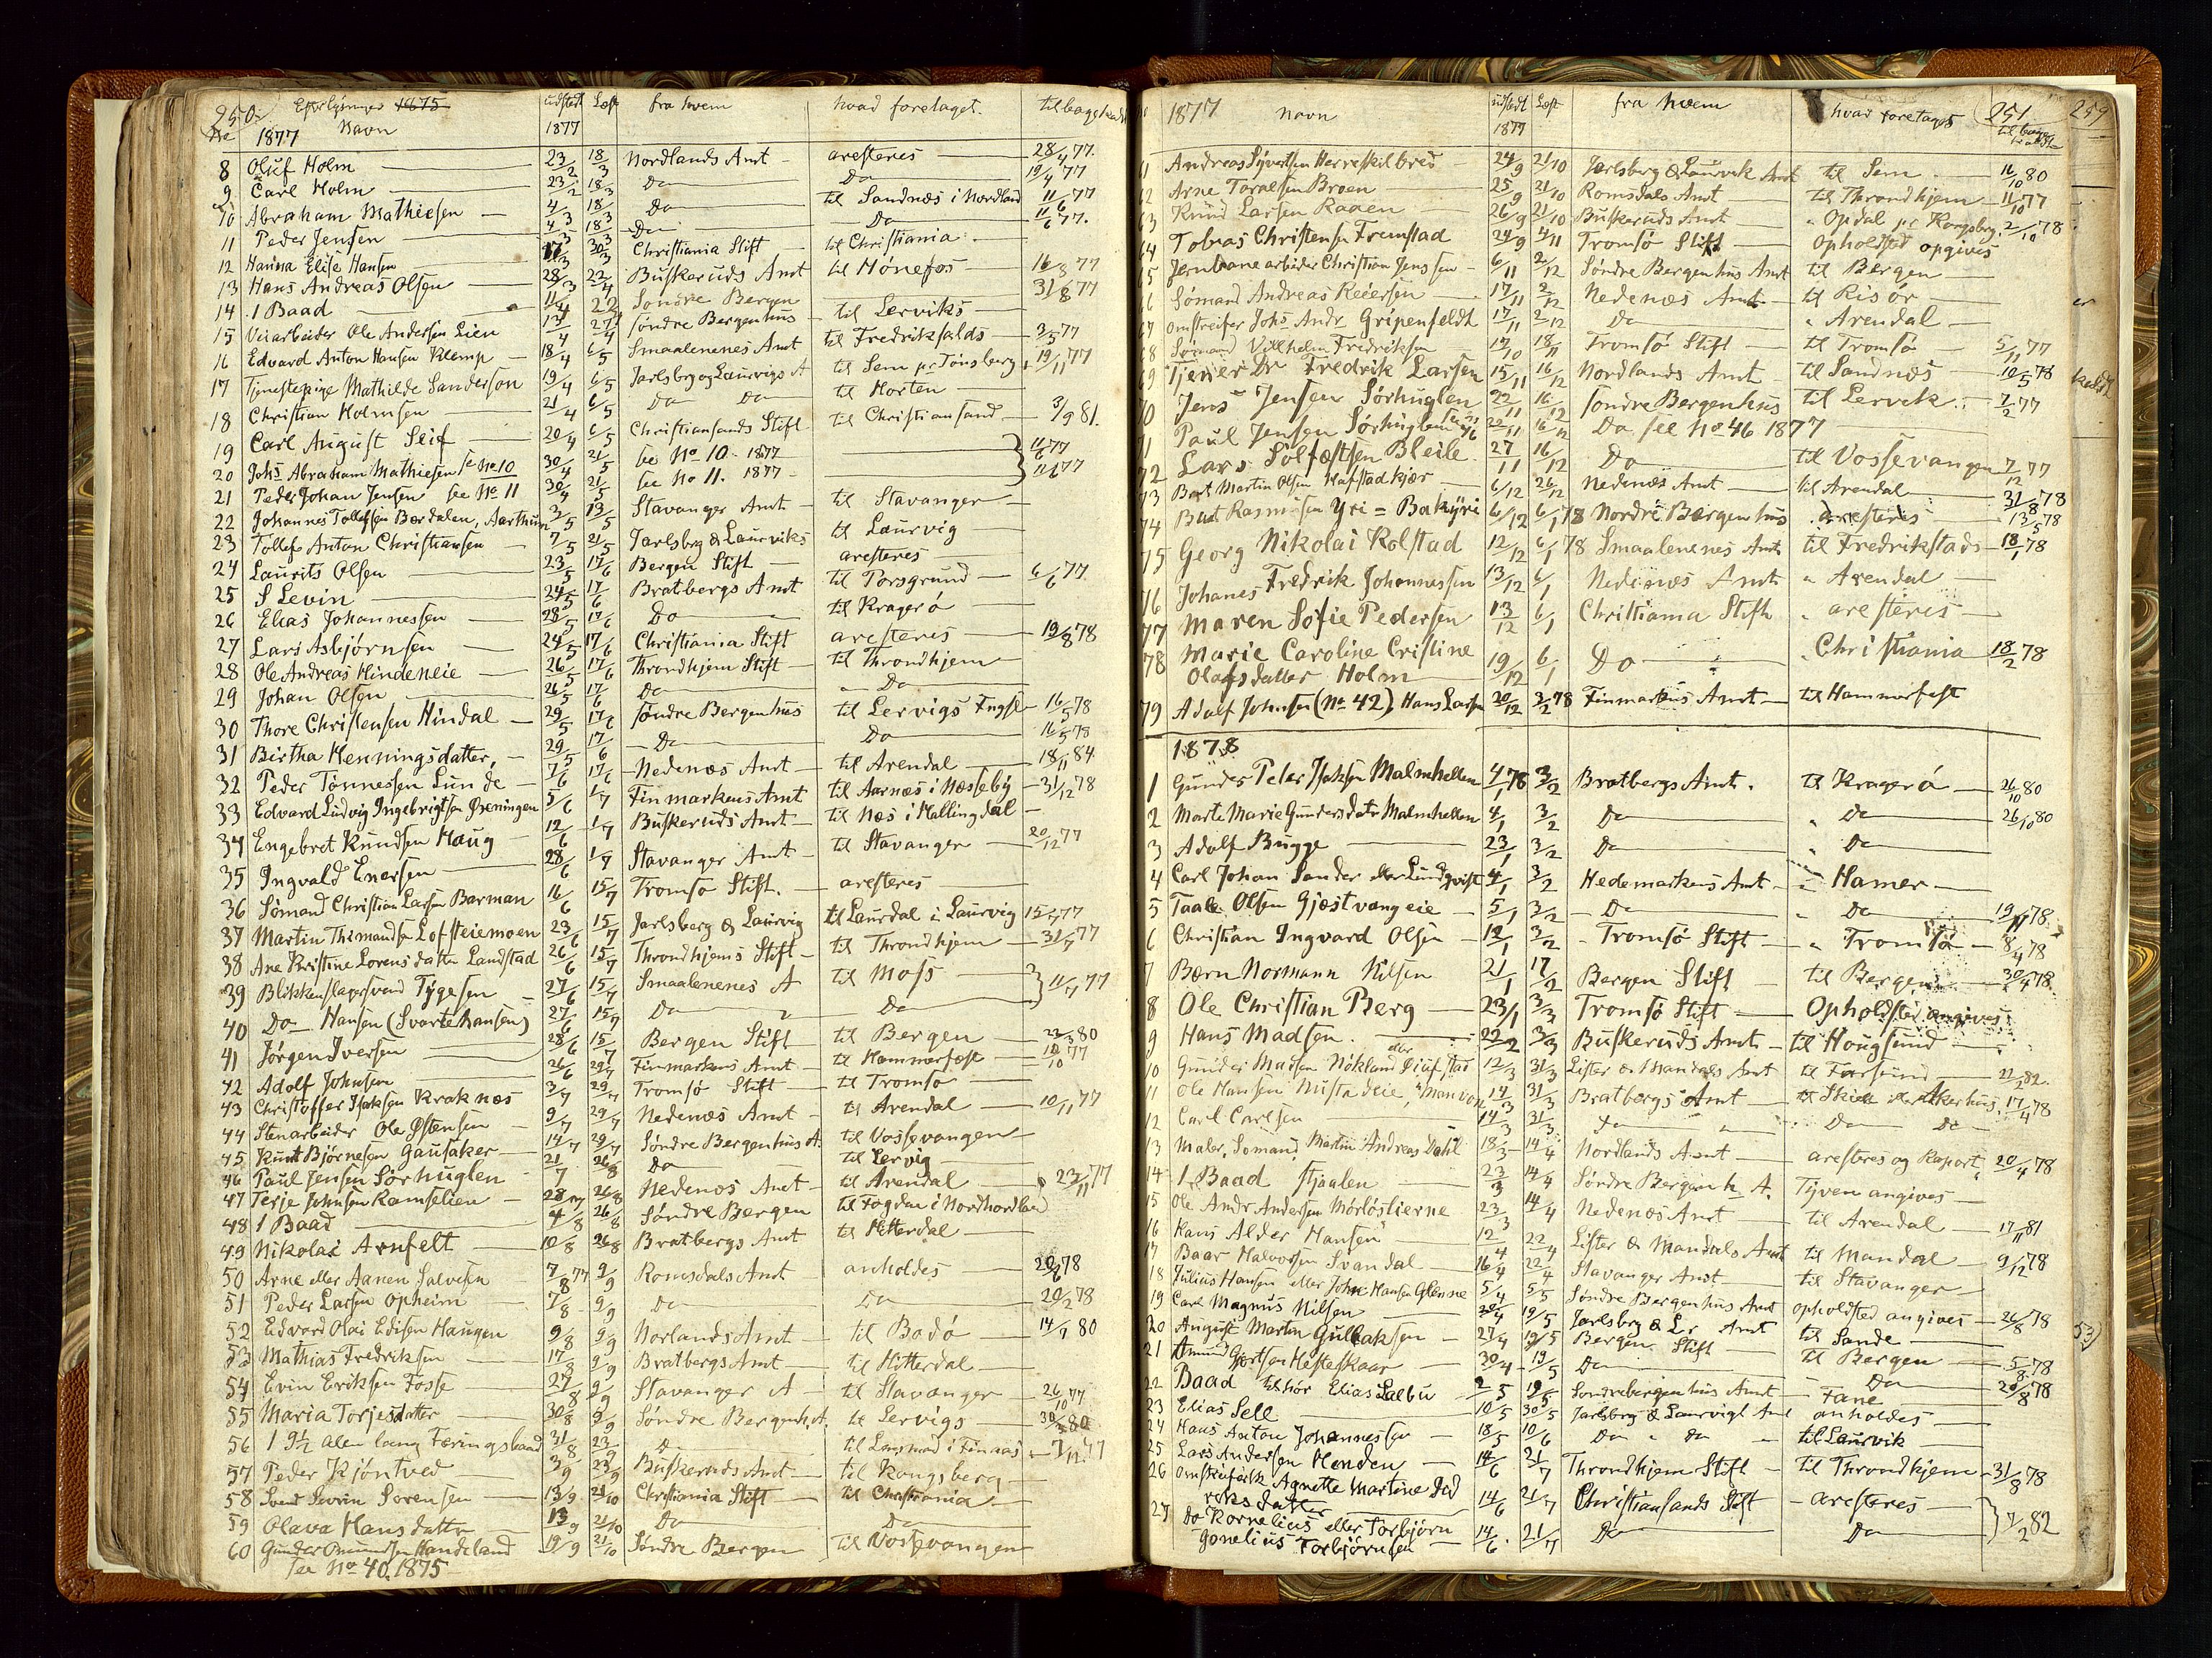 250. Efterlysninger 1875 udstedt Læst fra hvem hvad foretaget. tilbagekaldt
No 1877 Navn 1877
8 Oluf Holm 23/2 18/3 Nordlands Amt aresteres 28/4 77.
9 Carl Holm 23/2 18/3 Do Do 19/4 77
10 Abraham Mathiesen 4/3 18/3 Do til Sandnæs i Nordland 11/6 77
11 Peder Jensen 4/3 18/3 Do Do 11/6 77.
12 Hanna Elise Hansen 17/3 30/3 Christiania Stift til Christiania
13 Hans Andreas Olsen 28/3 22/4 Buskeruds Amt til Hønefos 16/8 77
14 1 Baad 11/4 22/4 Søndre Bergen 31/8 77
15 Veiarbeider Ole Andersen Lien 13/4 27/4 Søndre Bergenhus til Lerviks
16 Edvard Anton Hansen Klemp 18/4 6/5 Smaalenenes Amt til Fredrikshalds 3/5 77
17 Tjenestepige Mathilde Sanderson 19/4 6/5 Jarlsberg og Laurvigs A til Sem pr Tønsberg 19/11 77
18 Christian Holmsen 21/4 6/5 Do Do til Horten
19 Carl August Seif 20/4 6/5 Christiansands Stift til Christiansand 3/9 81.
20 Johs Abraham Mathiesen se No 10 30/4 21/5 se No 10. 1877 11/6 77
21 Peder Johan Jensen see No 11 30/4 21/5 see No 11. 1877 11/6 77
22 Johannes Tollefsen Bordalen, Aarthun 3/5 13/5 Stavanger Amt til Stavanger
23 Tollef Anton Christiansen 7/5 21/5 Jarlsberg & Laurviks til Laurvig
24 Laurits Olsen 23/5 17/6 Bergen Stift aresteres
25 S Levin 24/5 17/6 Bratbergs Amt til Porsgrund 6/6 77.
26 Elias Johannessen 28/5 17/6 Do til Kragerø
27 Lars Asbjørnsen 24/5 17/6 Christiania Stift aresteres 19/8 78
28 Ole Andreas Hindeneie 26/5 17/6 Throndhjem Stift til Throndhjem
29 Johan Olsen 26/5 17/6 Do Do
30 Thore Christensen Hindal 29/5 17/6 Søndre Bergenhus til Lervigs Fngsl 16/5 78
31 Birtha Henningsdatter, 29/5 17/6 Do Do 16/5 78
32 Peder Tønnessen Lunde 7/6 17/6 Nedenæs Amt til Arendal 18/11 84.
33 Edvard Ludvig Ingebrigtsen Greningen 5/6 1/7 Finmarkens Amt til Aarnæs i Næsseby 31/12 78
34 Engebret Knudsen Haug 12/6 1/7 Buskeruds Amt til Næs i Hallingdal
35 Ingvald Enersen 28/6 1/7 Stavanger Amt til Stavanger 20/12 77
36 Sømand Christian Larsen Barman 16/6 15/7 Tromsø Stift. aresteres
37 Martin Thomandsen Lofsteiemoen 23/6 15/7 Jarlsberg & Laurvig til Laurdal i Laurvig 15/7 77
38 Ane Kristine Lorensdatter Landstad 26/6 15/7 Throndhjems Stift til Throndhjem 31/7 77
39 Blikkenslagersvend Tygesen 27/6 15/7 Smaalenenes A til Moss 11/7 77
40 Do Hansen (Svartehansen) 27/6 15/7 Do Do
41 Jørgen Iversen 28/6 15/7 Bergen Stift til Bergen 23/3 80
42 Adolf Johnsen 26/6 29/7 Finmarkens Amt til Hammerfest 10/10 77
43 Christoffer Isaksen Kraknæs 3/7 29/7 Tromsø Stift til Tromsø
44 Stenarbeider Ole Østensen 9/7 29/7 Nedenæs Amt til Arendal 10/11 77
45 Knut Bjørnesen Gausaker 14/7 29/7 Søndre Bergenhus A. til Vossevangen
46 Paul Jensen Sørhuglen 21/7 26/8 Do til Lervig
47 Terje Johnsen Ramselien 28/7 26/8 Nedenæs Amt til Arendal 23/11 77
48 1 Baad 4/8 26/8 Søndre Bergen til Fogden i Nordhordland
49 Nikolai Arnfelt 10/8 26/8 Bratbergs Amt til Hitterdal
50 Arne eller Aanen Salvesen 7/8 77 9/9 Romsdals Amt anholdes 20/2 78
51 Peder Larsen Opheim 7/8 9/9 Do Do 20/2 78
52 Edvard Olai Edisen Haugen 9/8 9/9 Norlands Amt til Bodø 14/9 80
53 Mathias Fredriksen 17/8 9/9 Bratbergs Amt til Hitterdal
54 Evin Eriksen Fosse 27/8 9/9 Stavanger A til Stavanger 26/10 77
55 Maria Torjesdatter 30/8 9/9 Søndre Bergenh. A. til Lervigs 30/3 80
56 1 9½ Alen lang Færingsbaad 31/8 23/9 Do til Lensmand i Finnaas
57 Peder Kjøntved 3/9 23/9 Buskeruds Amt til Kongsberg
58 Svend Severin Sørensen 13/9 21/10 Christiania Stift til Christiania
59 Olava Hansdatter 13/9 21/10 Do Do
60 Gunder Omundsen Handeland 19/9 21/10 Søndre Bergen til Vossevangen
see No 40. 1875
1877 Navn udstedt Læst fra hvem hvad foretages 251 tilbagekaldt 259
1877
61 Andreas Syvertsen Herreskilbred 24/9 21/10 Jarlsberg & Laurvik Amt til Sem 16/10 80
62 Arne Toralsen Broen 25/9 21/10 Romsdals Amt til Throndhjem 11/10 77
63 Knud Larsen Raaen 26/9 21/10 Buskeruds Amt " Opdal pr Kongsberg. 2/10 78
64 Tobias Christensen Fremstad 24/9 4/11 Tromsø Stift Opholdsted opgives
65 Jernbanearbeider Christian Jenssen 6/11 2/12 Søndre Bergenhus Amt til Bergen
66 Sømand Andreas Reiersen 17/11 2/12 Nedenæs Amt til Risør
67 Omstreifer Johs Andr Gripenfeldt 17/11 2/12 Do " Arendal
68 Sømand Villhelm Fredriksen 17/10 18/11 Tromsø Stift til Tromsø 5/11 77
69 Tjener Dr Fredrik Larsen 15/11 16/12 Nordlands Amt til Sandnæs 10/5 78
70 Jens Jensen Sørhuglen 22/11 16/12 Søndre Bergenhus til Lervik 7/2 77
71 Paul Jensen Sørhuglen 22/11 16/12 Do see No 46 1877
72 Lars Solfestsen Bleile 27/11 16/12 Do til Vossevangen 7/12 77
73 Bert Martin Olsen Hafstadkjær 6/12 26/12 Nedenæs Amt til Arendal 31/8 78
74 Bert Rasmusen Yri = Bakyri 6/12 6/1 78 Nordre Bergenhus aresteres 13/5 78
75 Georg Nikolai Kolstad 12/12 6/1 78 Smaalenenes Amt til Fredrikstads 18/1 78
76 Johanes Fredrik Johannessen 13/12 6/1 Nedenæs Amt " Arendal
77 Maren Sofie Pedersen 13/12 6/1 Christiania Stift " aresteres
78 Marie Caroline Cristine
Olafsdatter Holm 19/12 6/1 Do " Christiania 18/2 78
79 Adolf Johnsen (No 42) Hans Larsen 20/12 3/2 78 Finmarkens Amt til Hammerfest
1878
1 Gunder Peter Isaksen Malmhellen 4/1 78 3/2 Bratbergs Amt. til Kragerø 26/10 80
2 Marte Marie Gundersdatr Malmhellen 4/1 3/2 Do " Do 26/10 80
3 Adolf Bugge 23/1 3/2 Do " Do
4 Carl Johan Sander eller Lundqvist 4/1 3/2 Hedemarkens Amt " Hamer
5 Taale Olsen Gjæstvangeie 5/1 3/2 Do " Do 19/11 78.
6 Christian Ingvard Olsen 12/1 3/2 Tromsø Stift " Tromsø 8/4 78
7 Bærn Normann Nilsen 21/1 17/2 Bergen Stift til Bergen 30/4 78.
8 Ole Christian Berg 23/1 3/3 Tromsø Stift Opholdsted angives
9 Hans Madsen. 22/2 3/3 Buskeruds Amt til Hougsund
10 Gunder Madsen Nøkland eller 12/3 31/3 Lister & Mandals Amt til Farsund 82.
11 Ole Hansen Nustadeie, 14/3 31/3 Bratbergs Amt til Skien eller Akerhus. 17/4 78
12 Carl Carlsen 14/3 31/3 Do Do Do
13 Maler, Sømand, Martin Andreas Dahl 18/3 14/4 Nordlands Amt aresteres og Raport 20/4 78
14 1 Baad stjaalen 23/3 14/4 Søndre Bergenh A. Tyven angives
15 Ole Andr Andersen Mørløstierne 23/3 14/4 Nedenæs Amt til Arendal 17/11 81
16 Hans Alder Hansen 12/4 22/4 Lister & Mandals Amt til Mandal 9/12 78
17 Baar Halvorsen Svandal 16/4 22/4 Stavanger Amt til Stavanger
18 Julius Hansen eller John Hansen Glenne 5/4 5/5 Søndre Bergenhus Amt opholdsted angives 26/8 78
19 Carl Magnus Nilsen 20/4 19/5 Jarlsberg & Lr Amt til Sande
20 August Martin Gulbaksen 27/4 19/5 Bergen Stift til Bergen 5/8 78
21 Amund Gjertsen Hesteskaar 30/4 19/5 Do Do 20/8 78
22 Baad tilhør Elias Salbu 2/5 19/5 Søndrebergenhus Amt Fane
23 Elias Sell 10/5 30/5 Jarlsberg & Laurvigs Amt anholdes
24 Hans Anton Johannessen 18/5 10/6 Do " Do til Laurvik
25 Lars Andersen Henden 14/6 21/7 Throndhjem Stift til Throndhjem 31/8 78
26 Omstreifersk. Agnette Martine Did
riksdatter 14/6 21/7 Christiansands Stift aresteres
27 Do Kornelius eller Torbjørn
Gonelius Torbjørnsen 14/6 21/7 Do Do 7/2 82